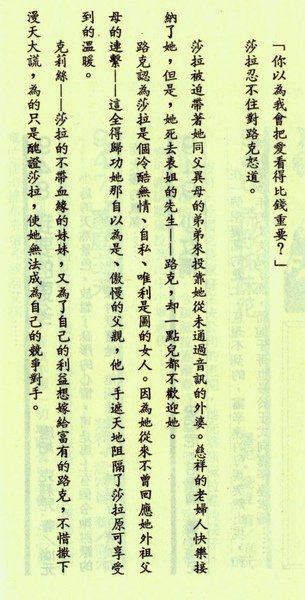 「你以為我會把愛看得比錢重要？」
莎拉忍不住對路克怒道。
莎拉被迫帶著她同父異母的弟弟來投靠她從未通過音訊的外婆。慈祥的老婦人快樂接
納了她，但是，她死去表姐的先生——路克，却一點兒都不歡迎她。
路克認為莎拉是個冷酷無情、自私、唯利是圖的女人。因為她從來不曾回應她外祖父
母的連繫——這全得歸功她那自以為是、傲慢的父親，他一手遮天地阻隔了莎拉原可享受
到的溫暖。
克莉絲——莎拉的不帶血緣的妹妹，又為了自己的利益想嫁給富有的路克，不惜撒下
漫天大謊，為的只是醜證莎拉，使她無法成為自己的競爭對手。